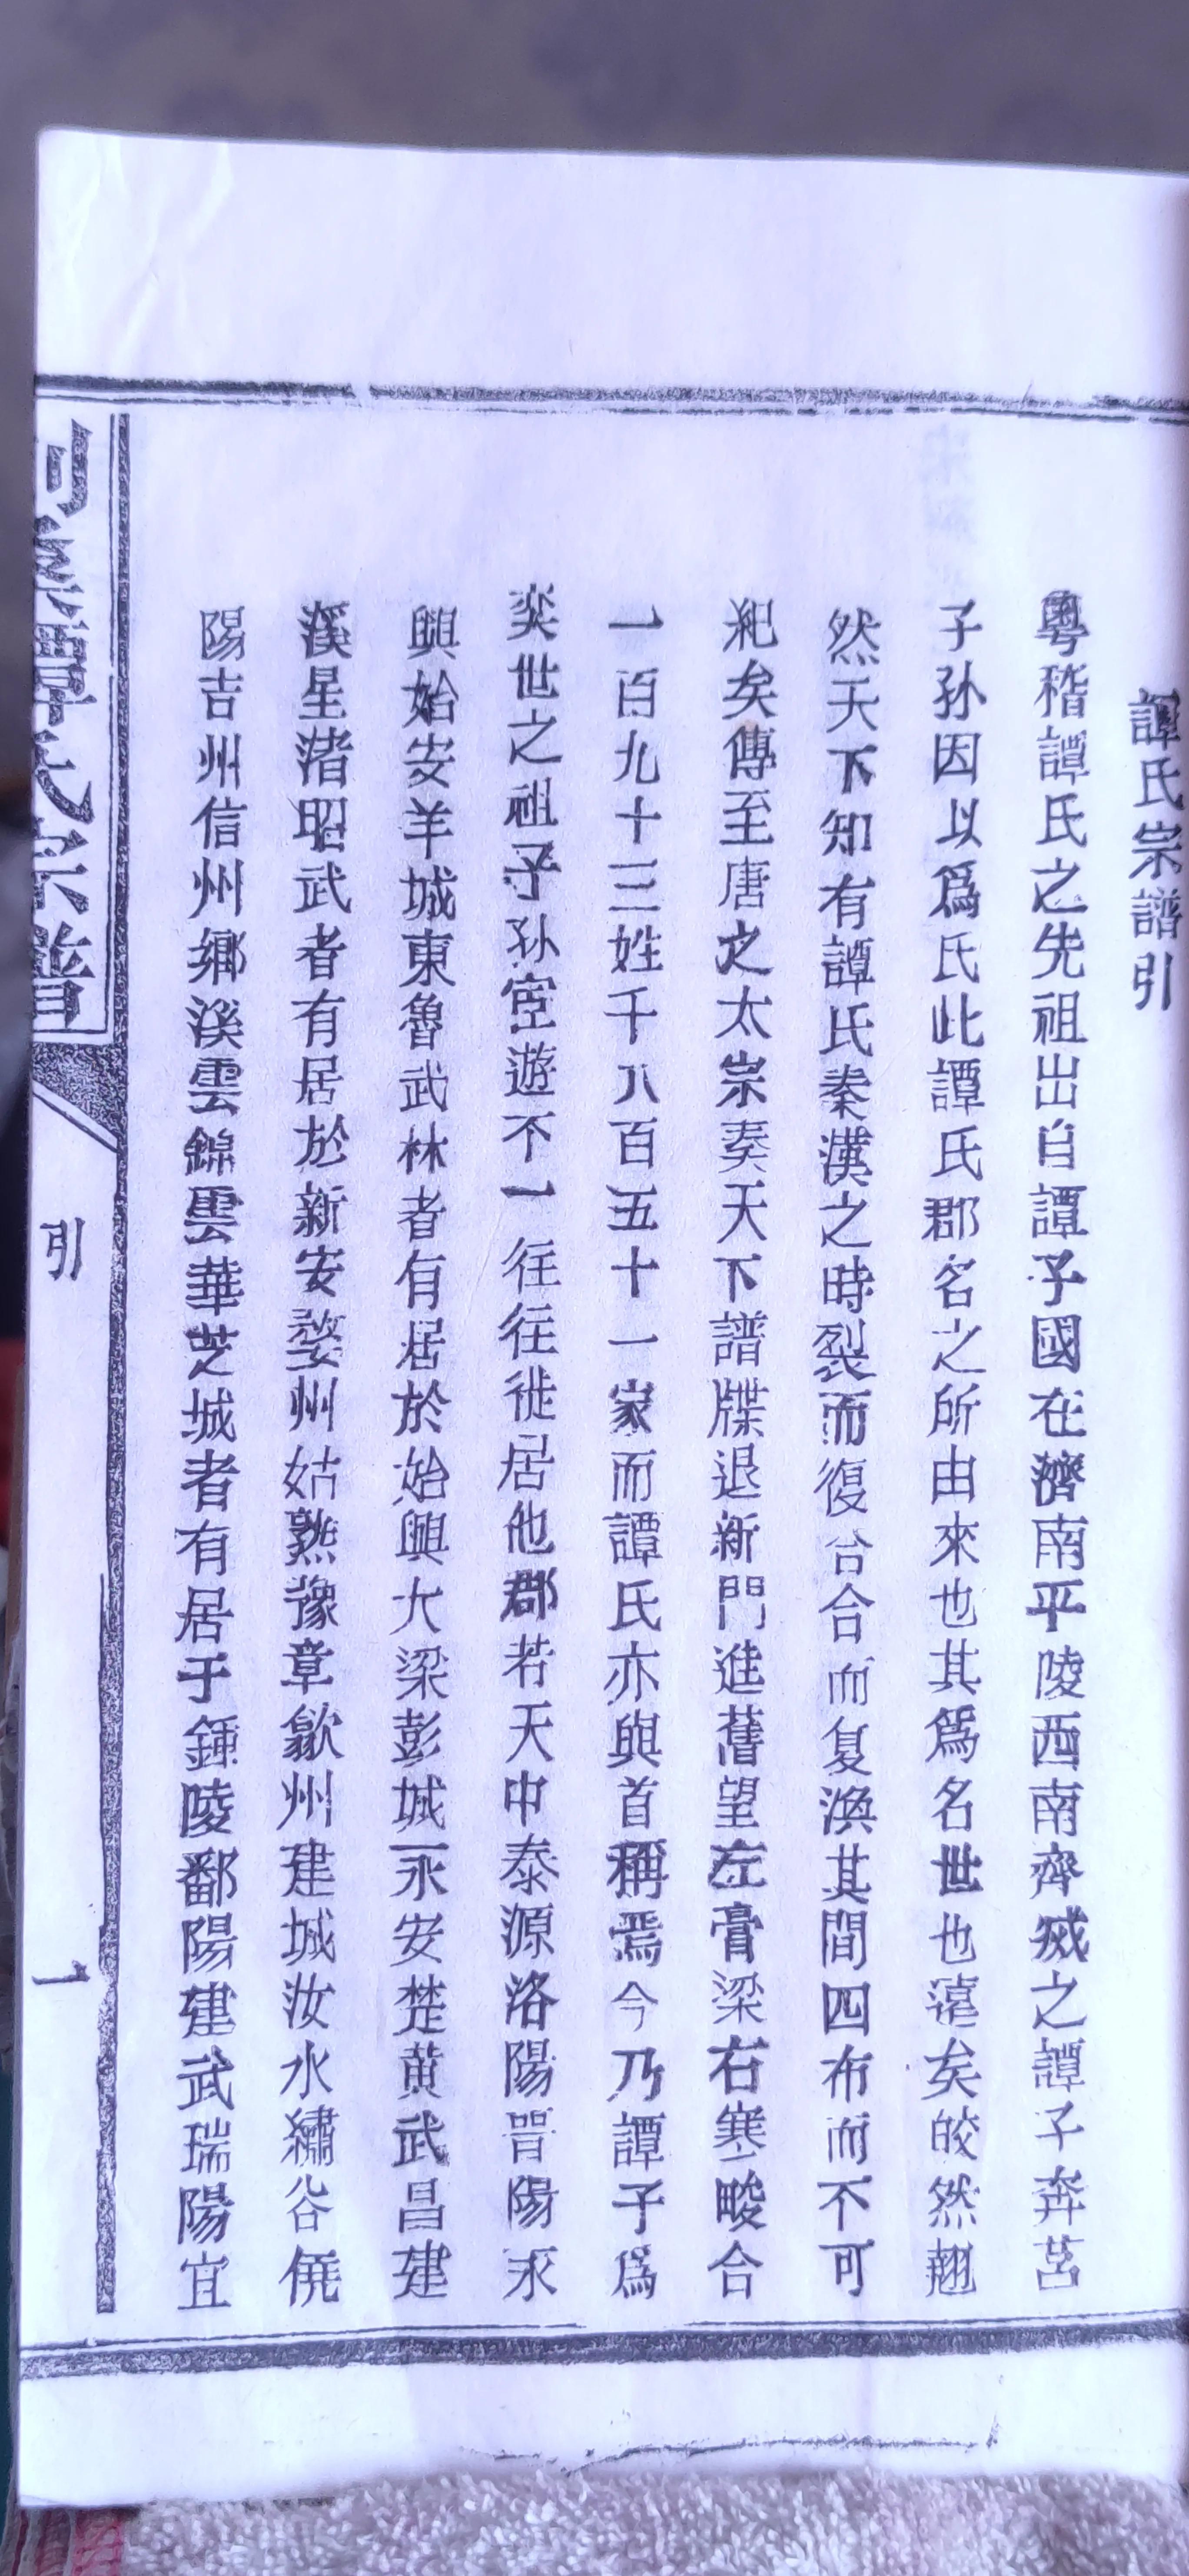 譚氏宗譜引
粵稽譚氏之先祖出自譚子國在濟南平陵西南齊烕之譚子奔莒
子孫因以爲氏此譚氏郡名之所由來也其爲名世也遠矣皎然翹
然天下知有譚氏秦漢之時裂而復合合而复渙其間四布而不可
紀矣傳至唐之太宗奏天下譜牒退新門進舊望左膏梁右寒畯合
一百九十三姓千八百五十一家而譚氏亦與首稱焉今乃譚子爲
奕世之祖子孫宦遊不一往往徙居他郡若天中泰源洛陽晉陽永
興始安羊城東魯武林者有居於始興大梁彭城永安楚黃武昌建
溪星渚昭武者有居於新安婺州姑熟豫章歙州建城汝水繡谷饒
陽吉州信州鄉溪雲錦雲華芝城者有居于鍾陵鄱陽建武瑞陽宜
譚氏宗譜
引
一